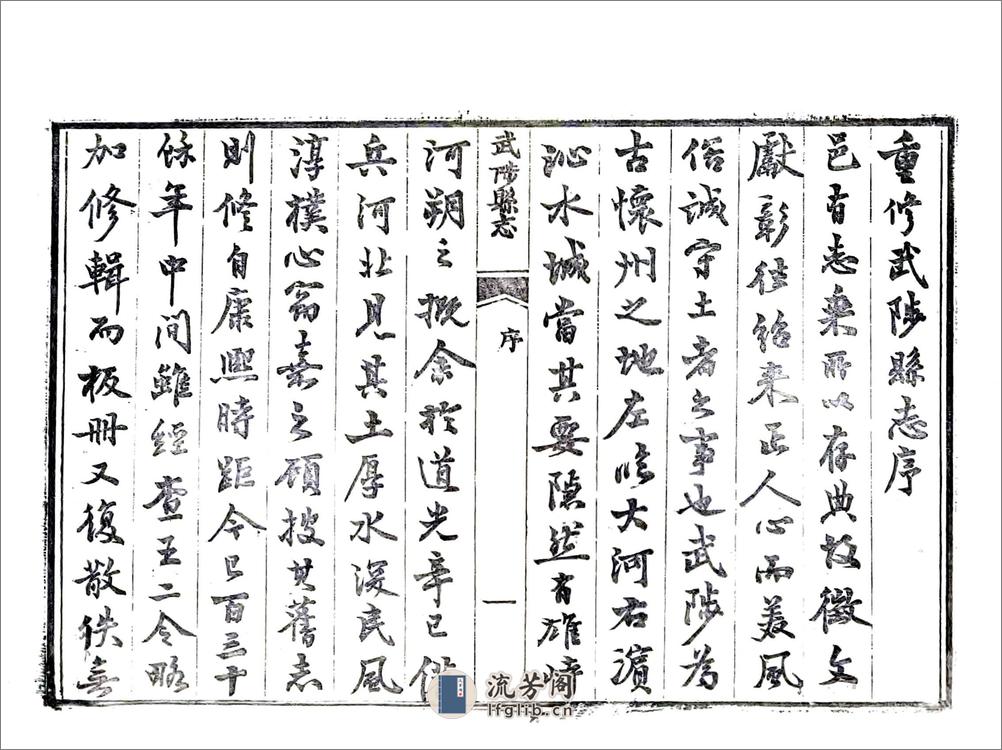 重修武陟縣志序
邑有志乘所以存典故徵文
獻彰往紹來正人心而美風
俗誠守土者之事也武陟為
古懷州之地左臨大河右濱
沁水城當其要隱然有雄峙
武陟縣志
序
一
河朔之概余於道光辛巳備
兵河北見其土厚水深民風
淳樸心竊喜之碩披其舊志
則修自康熙時距今已百三十
餘年中間雖經查王二令略
加修輯而板冊又復散佚無
流芳阁
lfglib.cn